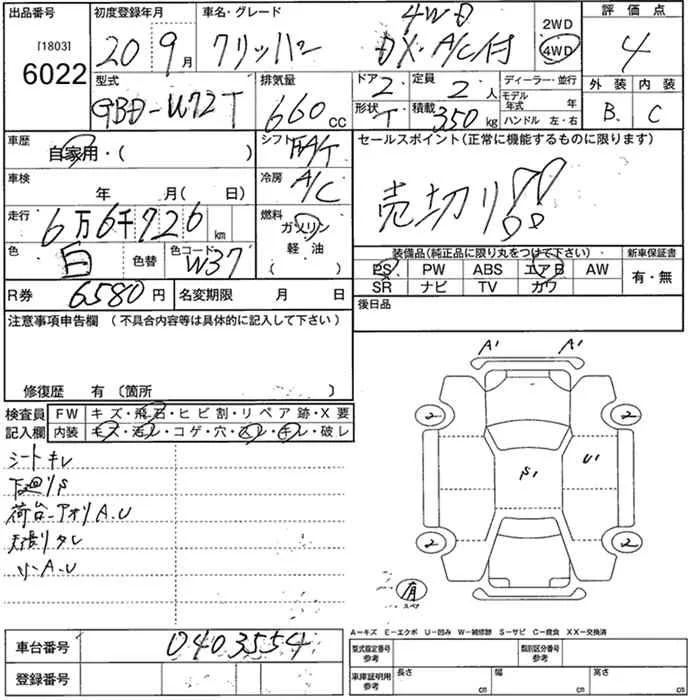 出品番号 初度登録年月 車名・グレード 4WD 2WD 評価点
[1803] 6022 20 9月 クリッパー DX・A/C付 4WD 4
型式 排気量 ドア 2 定員 2人 ディーラー・並行 外装 内装
GBD-U72T 660cc 形状 T 積載 350kg モデル年式 年 B C
ハンドル 左・右
車歴 自家用・( ) シフト セールスポイント(正常に機能するものに限ります)
車検 年 月( 日) 冷房 A/C 売切り!!
走行 6万6千726km 燃料 ガソリン
軽油
( )
色 白 色替 色コード W37 装備品(純品品に限り丸をつけて下さい) 新車保証書
PS PW ABS エアB AW 有・無
SR ナビ TV カワ
R券 6580円 名変期限 月 日 後日品
注意事項申告欄(不具合内容等は具体的に記入して下さい)
修復歴 有〔箇所 〕
検査員 FW キズ・飛石・ヒビ割・リペア跡・X要
記入欄 内装 キズ・汚レ・コゲ・穴・スレ・キレ・破レ
シートキレ
下廻りS
荷台-アオリA.U
天張りタレ
リーA.U
A1 A1
2 2
S1 U1
2 2
有
スペア
A-キズ E-エクボ U-凹み W-補修跡 S-サビ C-腐食 XX-交換済
車台番号 0403554 型式指定番号 参考 類別区分番号 参考
登録番号 車庫証明用 参考 長さ cm 幅 cm 高さ cm